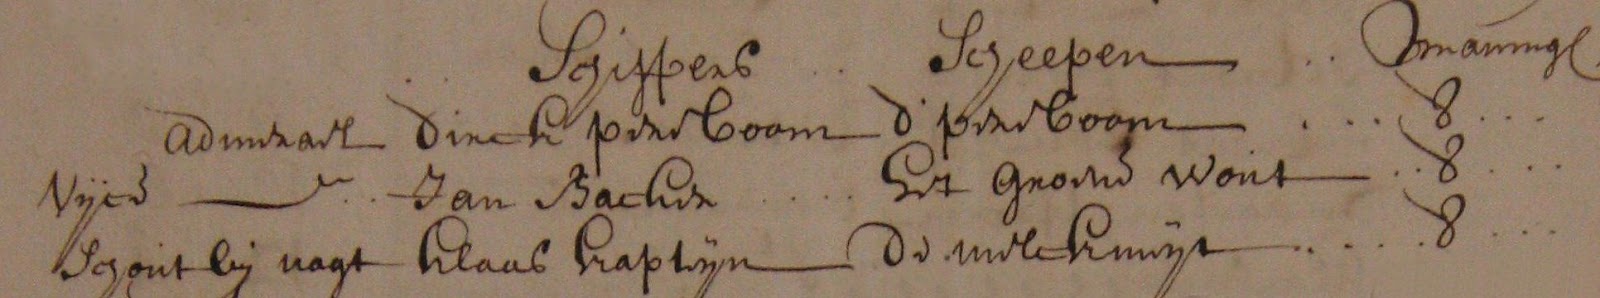 Schippers .. Scheepen .. maning
Admirael Dirck peereboom d' peereboom .... 8 ...
Vijce .. Jan Backer .... het groene Wout .. 8 ....
Schout bij nagt klaas kaptijn De melckmijt .... 8 ...